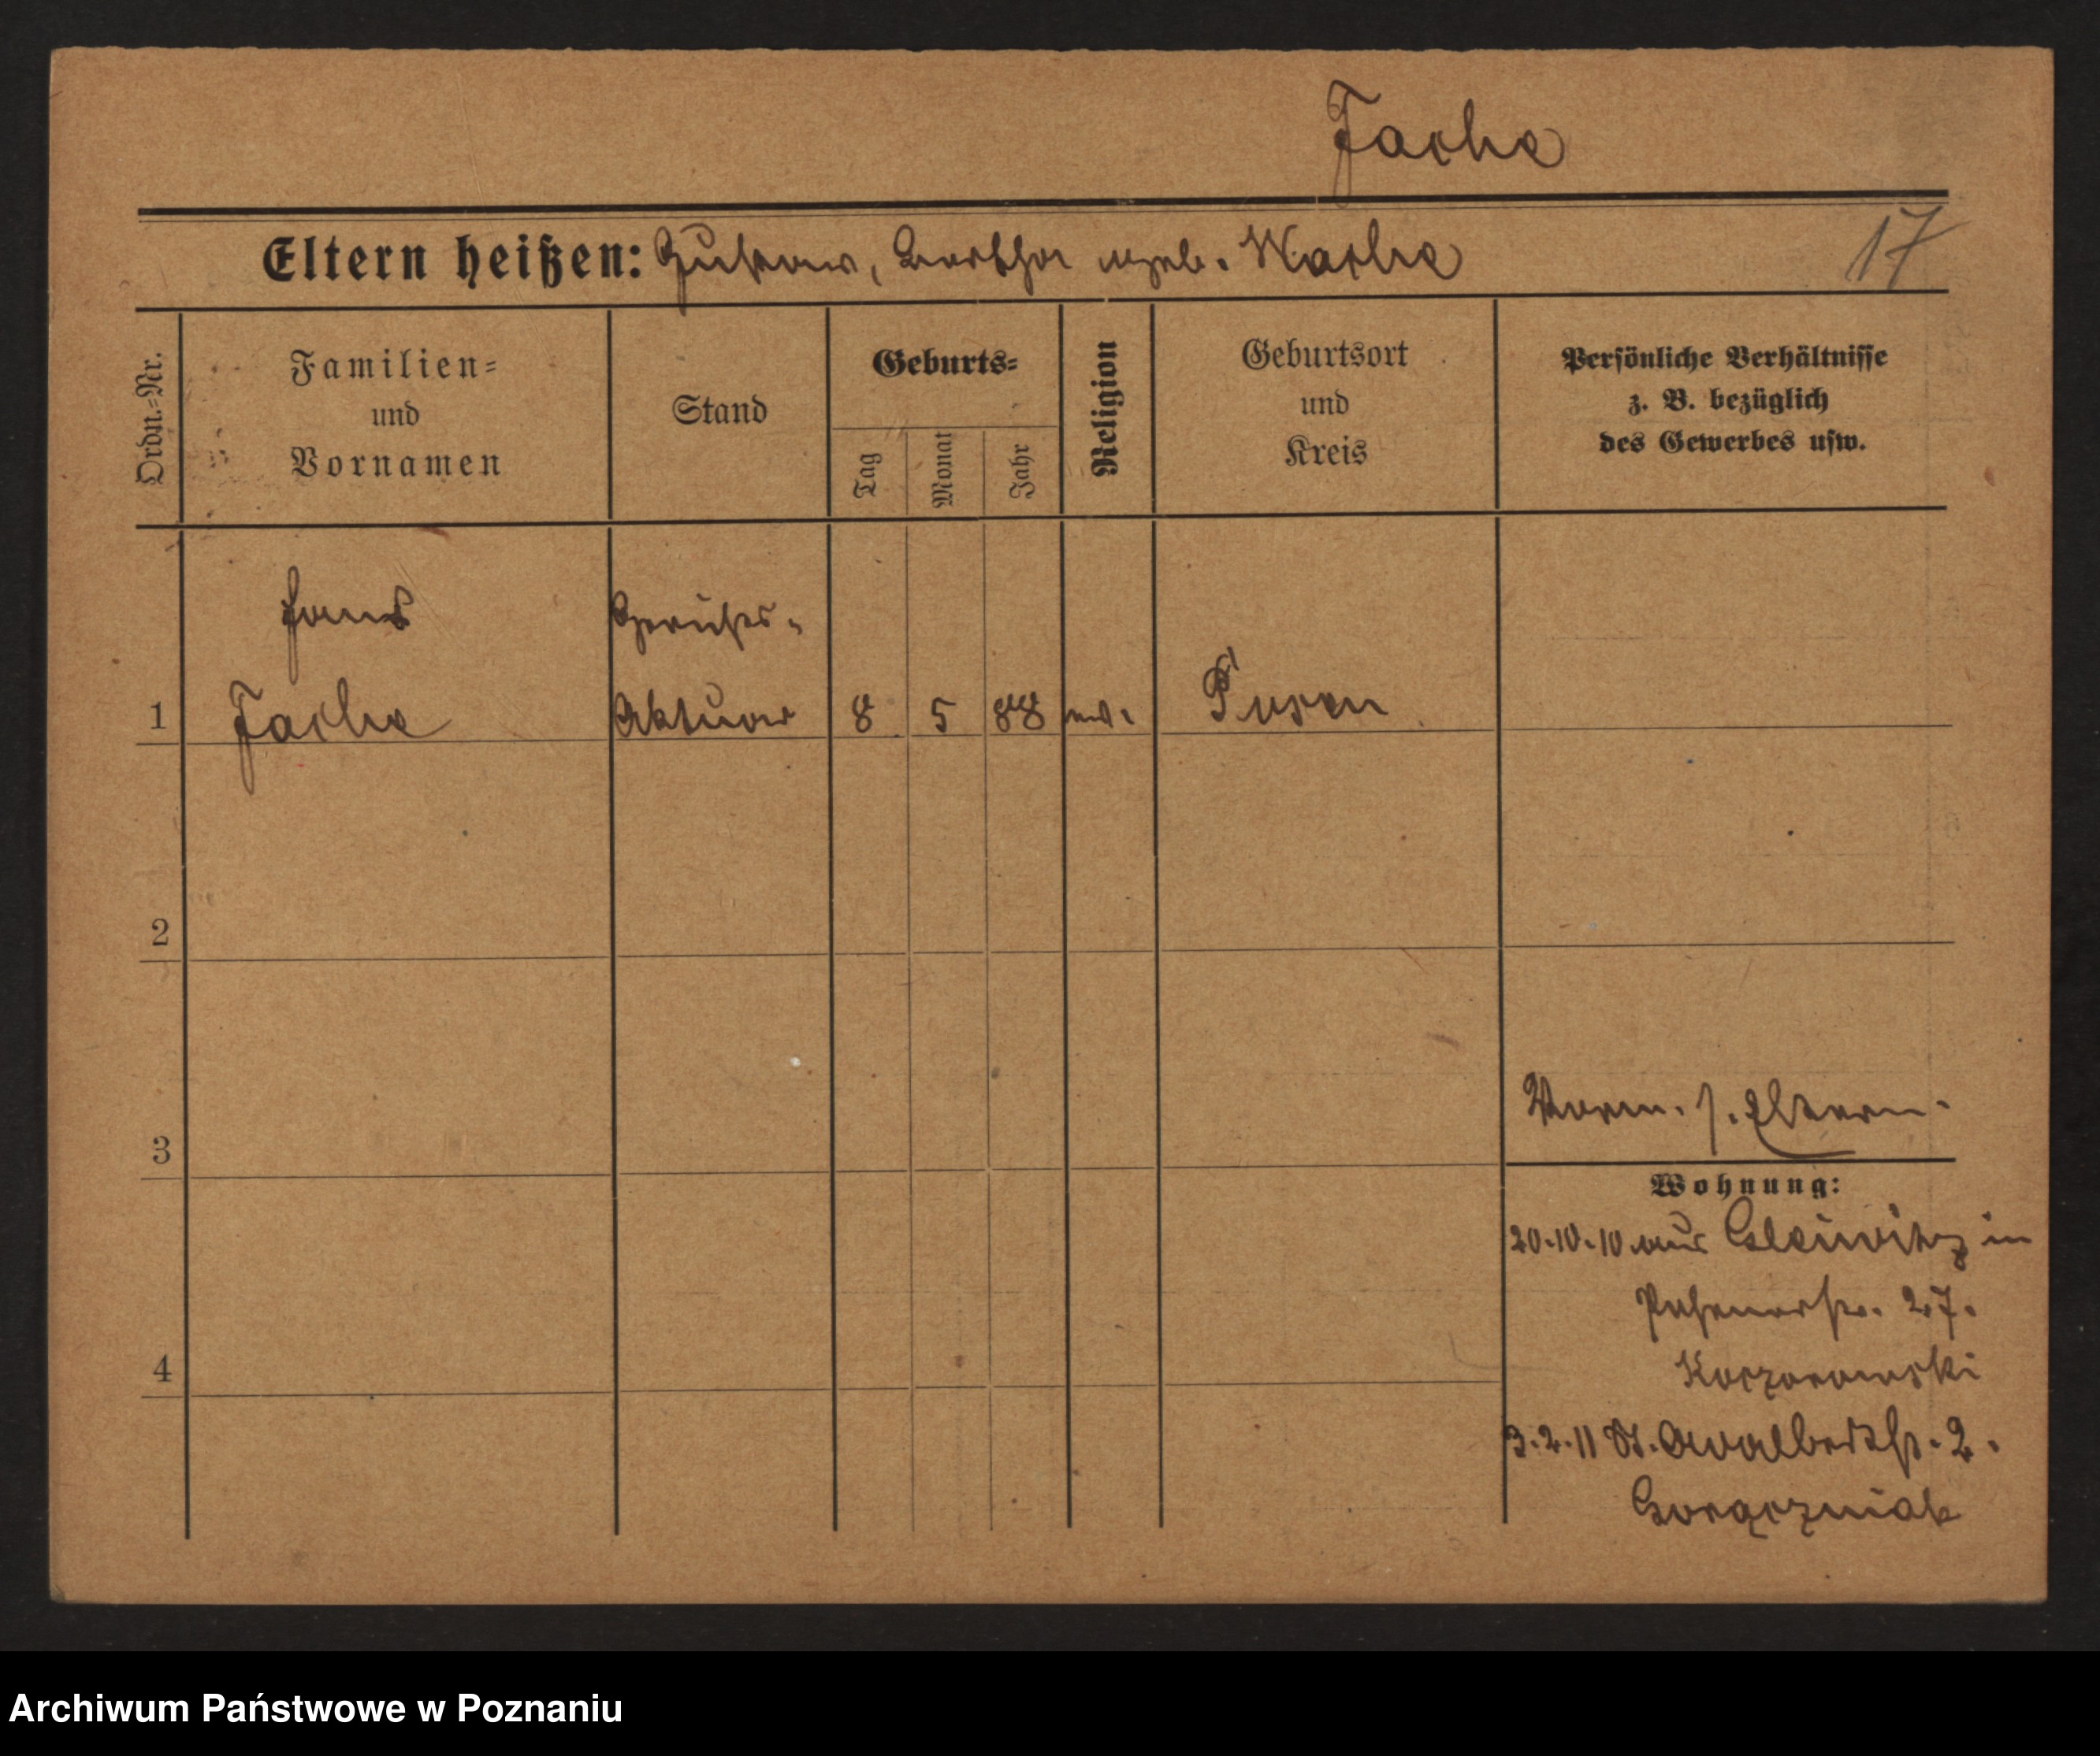 Jache
Eltern heißen: Gustav, Bertha geb. Wache
17
Ordn.-Nr.
Familien-
und
Vornamen
Stand
Geburts-
Tag
Monat
Jahr
Religion
Geburtsort
und
Kreis
Persönliche Verhältnisse
z. B. bezüglich
des Gewerbes usw.
Hans
Gerichts-
1 Jache Aktuar 8 5 88 ev. Posen
2
3
Verm. s. Eltern.
Wohnung:
20.10.10 aus Gleiwitz in
Posenerstr. 27.
4
Koczorowski
3.2.11 St. Adalbertstr. 2.
Gorączniak
Archiwum Państwowe w Poznaniu